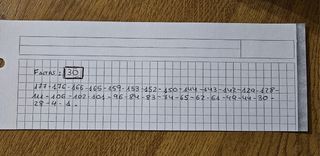 FALTAS: 30
177-176-166-165-159-153-152-150-144-143-142-129-128-
111-106-102-101-96-84-83-74-65-62-61-49-44-30-
28-4-1.